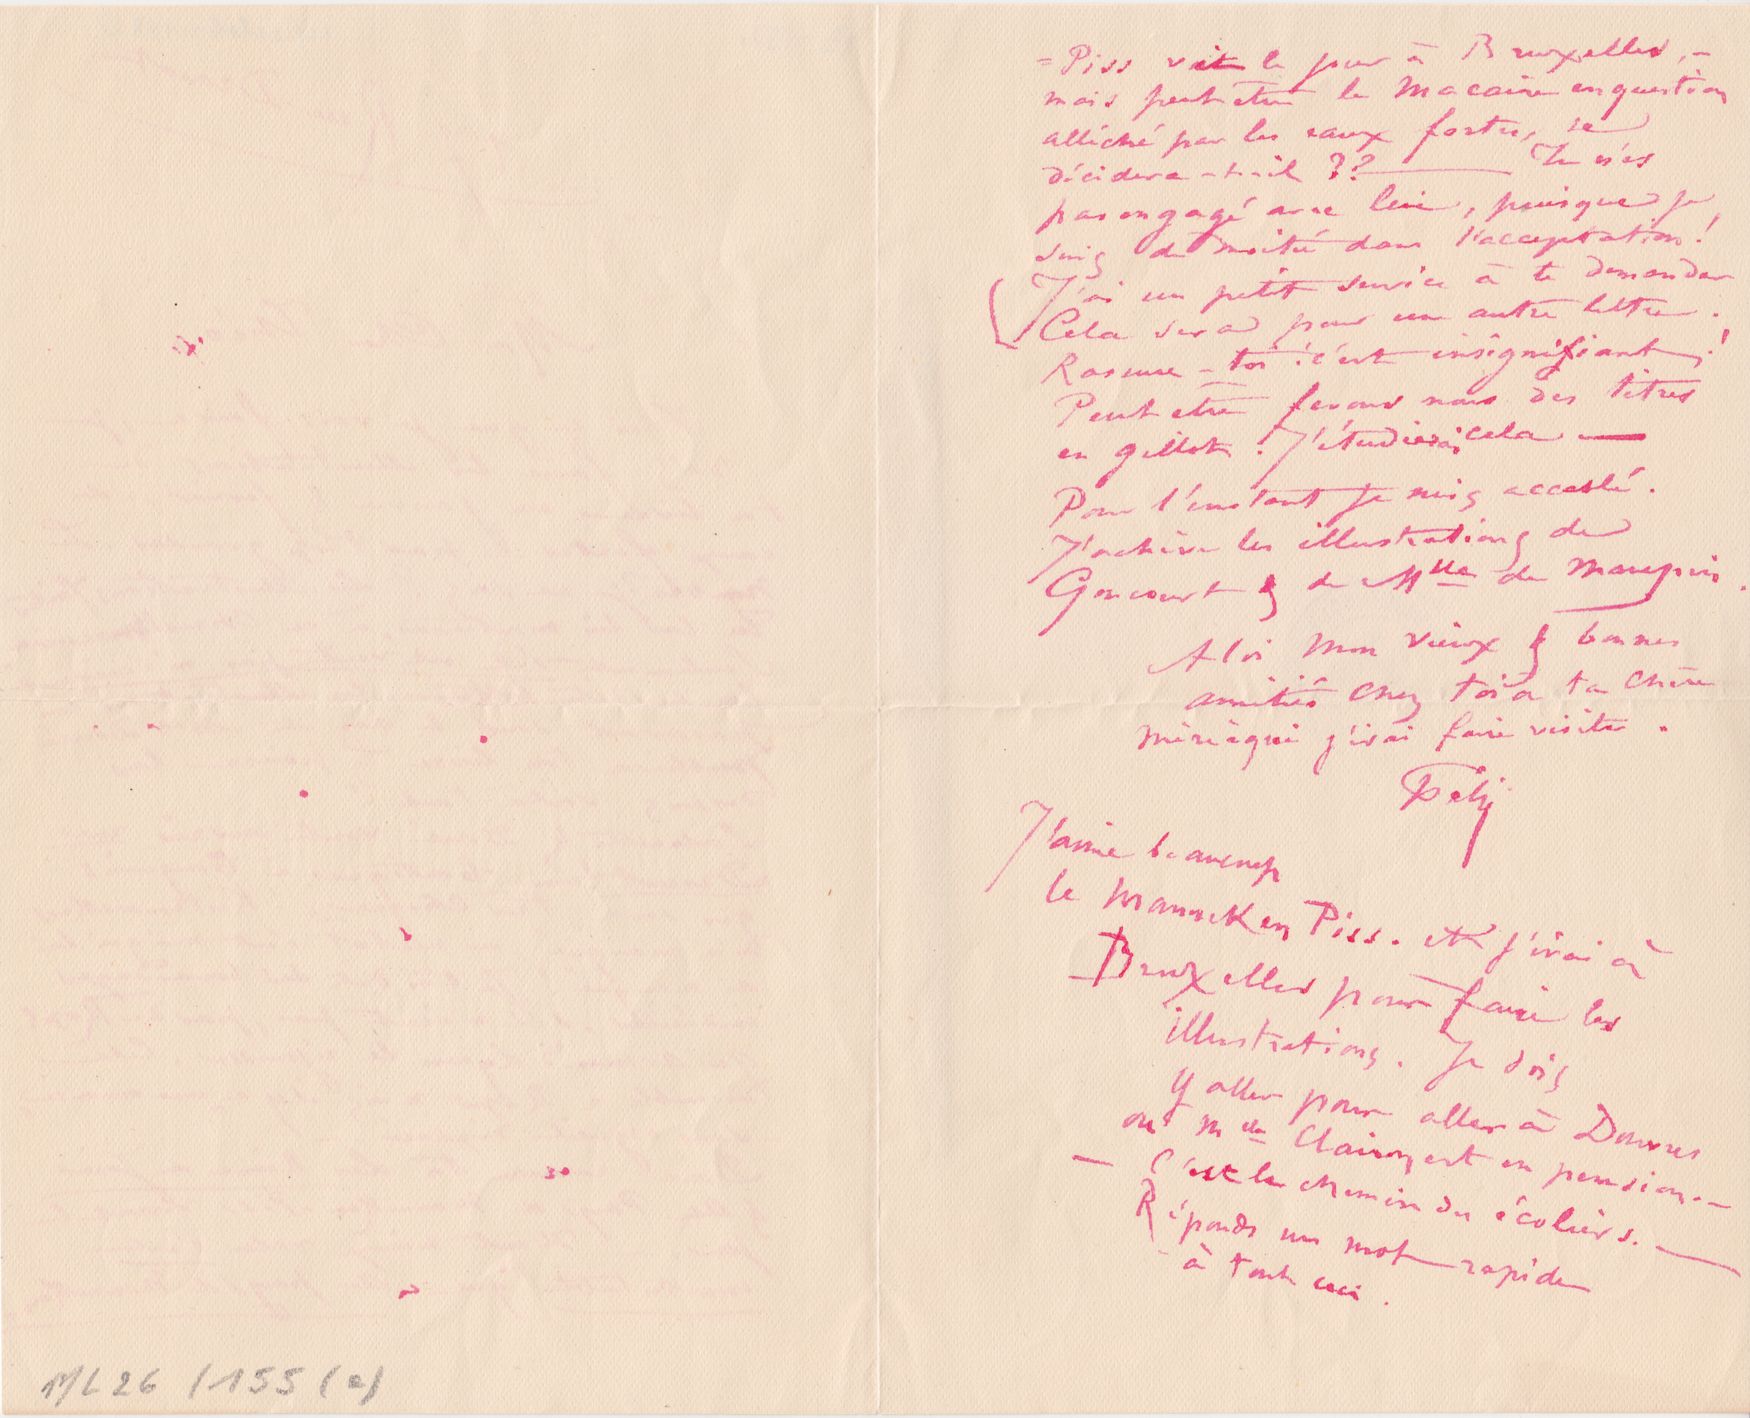 = Piss voit le jour à Bruxelles, –
mais peut etre le Macaire en question
alléché par les eaux fortes, se
décidera-t-il ?? —— Tu n'es
pas engagé avec lui, puisque je
suis de moitié dans l'acceptation !
J'ai un petit service à te demander
Cela sera pour une autre lettre.
Rassure-toi ! c'est insignifiant !
Peut etre ferons nous des titres
en gillot ! J'étudierai cela —
Pour l'instant je suis accablé.
J'achève les illustrations de
Goncourt & de Mlle de Maupin.
A toi mon vieux & bonnes
amitiés chez toi à ta chère
mère à qui j'irai faire visite.
Fély
J'aime beaucoup
le Manneken Piss. et j'irai à
Bruxelles pour faire les
illustrations. Je dois
y aller pour aller à Douvres
où Mlle Claire est en pension. —
— C'est le chemin des écoliers. —
Réponds un mot rapide
à tout ceci.
ML 26 / 155 (a)